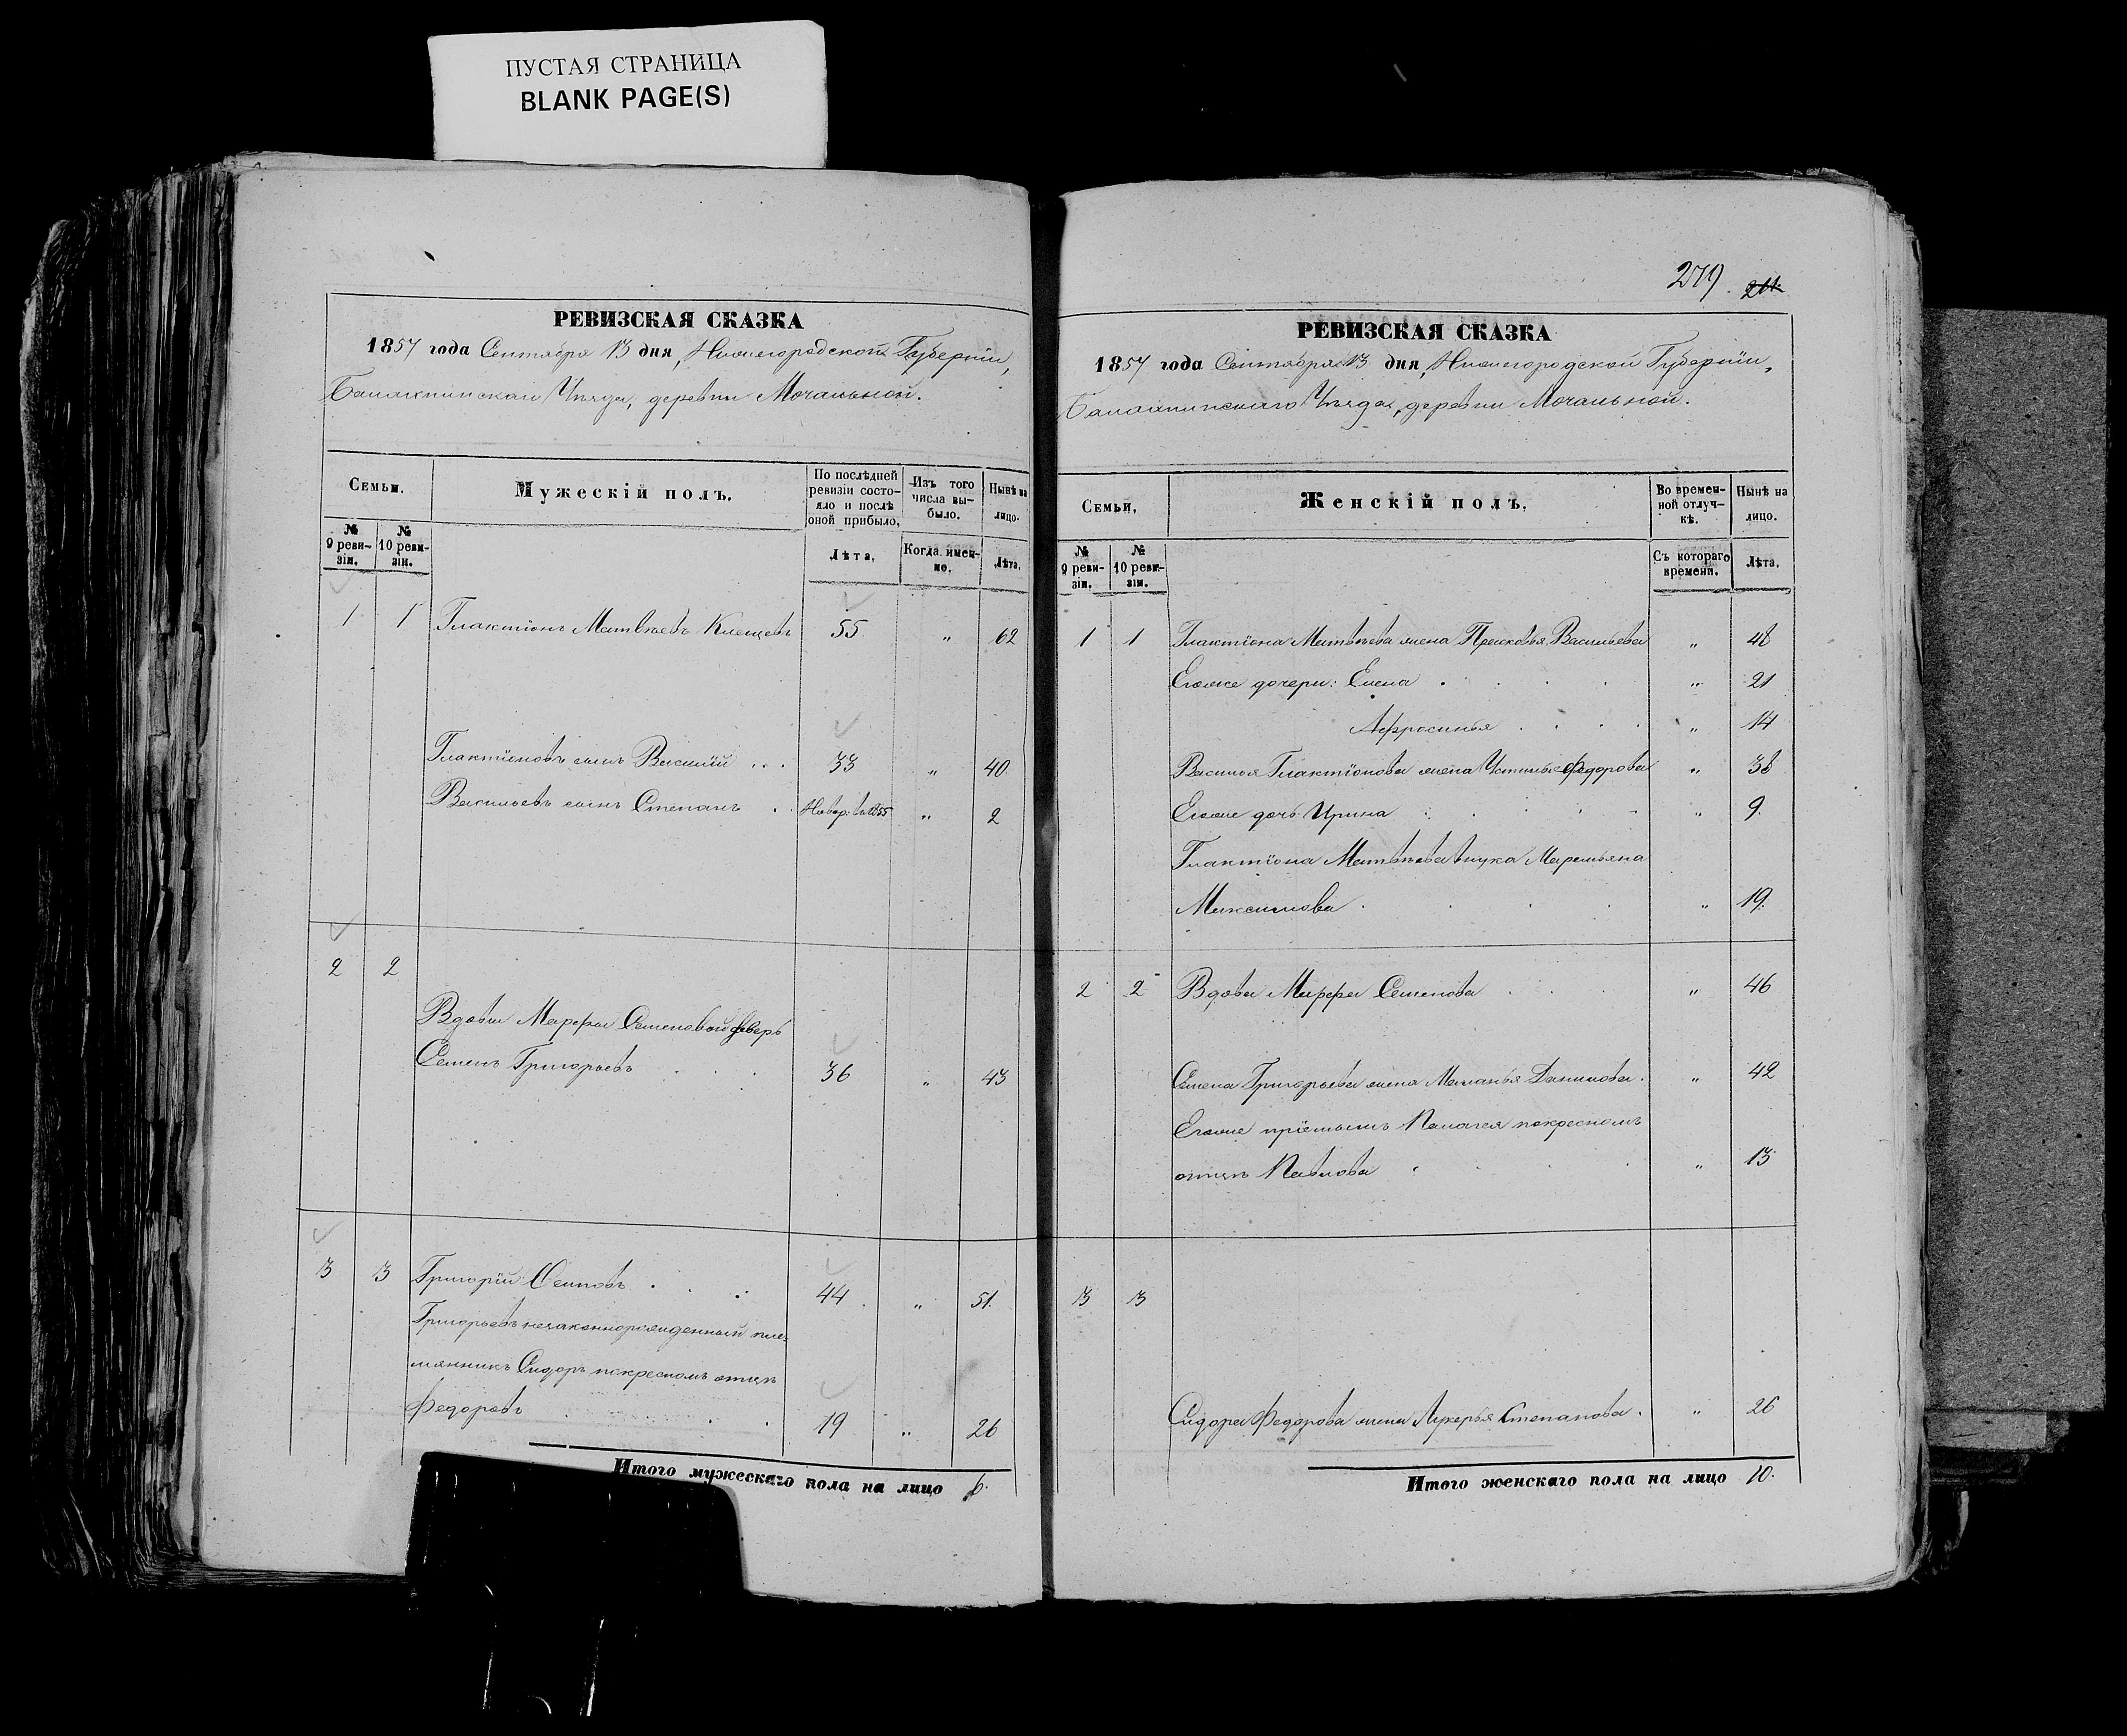 ПУСТАЯ СТРАНИЦА
BLANK PAGE(S)
РЕВИЗСКАЯ СКАЗКА
1857 года Сентября 13 дня, Нижегородской Губерніи,
Балахнинскаго Уѣзда, деревни Мочальной.
Семьи.
Мужескій полъ.
По послѣдней ревизіи состо-
яло и послѣ оной прибыло.
Изъ того числа вы-
было.
Нынѣ на лицо.
№ 9 реви-
зіи.
№ 10 реви-
зіи.
Лѣта.
Когда имен-
но.
Лѣта.
1 1 Галактіонъ Матвѣевъ Клещевъ 55 " 62
Галактіоновъ сынъ Василій . . . 33 " 40
Васильевъ сынъ Степанъ . . Новор. въ 1855 " 2
2 2
Вдовы Марфы Семеновой деверь
Семенъ Григорьевъ . . . 36 " 43
3 3 Григорій Осиповъ . . . 44 " 51.
Григорьевъ незаконнорожденный пле-
мянникъ Сидоръ покресномъ отцѣ
Федоровъ . . . . 19 " 26
Итого мужескаго пола на лицо 6.
279. 211
РЕВИЗСКАЯ СКАЗКА
1857 года Сентября 13 дня, Нижегородской Губерніи,
Балахнинскаго Уѣзда, деревни Мочальной.
Семьи.
Женскій полъ.
Во времен-
ной отлуч-
кѣ.
Нынѣ на лицо.
№ 9 реви-
зіи.
№ 10 реви-
зіи.
Съ котораго времени.
Лѣта.
1 1 Галактіона Матвѣева жена Прасковья Васильева " 48
Егоже дочери: Елена . . . . " 21
Афросинья . . . . " 14
Василья Галактіонова жена Устинья Федорова " 38
Егоже дочь Ирина . . . . " 9.
Галактіона Матвѣева внука Маремьяна
Максимова . . . . " 19.
2 2 Вдова Марфа Семенова . . . " 46
Семена Григорьева жена Маланья Данилова. " 42
Егоже пріемышъ Палагея покресномъ
отцѣ Павлова . . . . " 13
3 3
Сидора Федорова жена Лукерья Степанова. " 26
Итого женскаго пола на лицо 10.